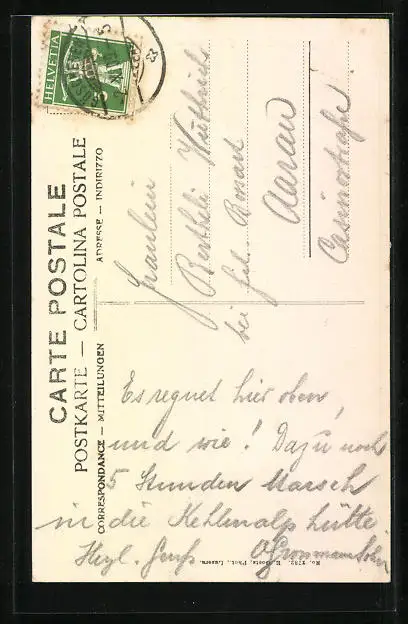 HELVETIA
CARTE POSTALE
POSTKARTE — CARTOLINA POSTALE
CORRESPONDANCE — MITTEILUNGEN
ADRESSE — INDIRIZZO
Fräulein
Berthili Wüthrich
bei
Aarau
Casinostraße
Es regnet hier oben,
und wie! Dazu noch
5 Stunden Marsch
in die Kehlenalphütte
Hrzl. Gruss
No. 1782. E. Goetz, Phot., Luzern.